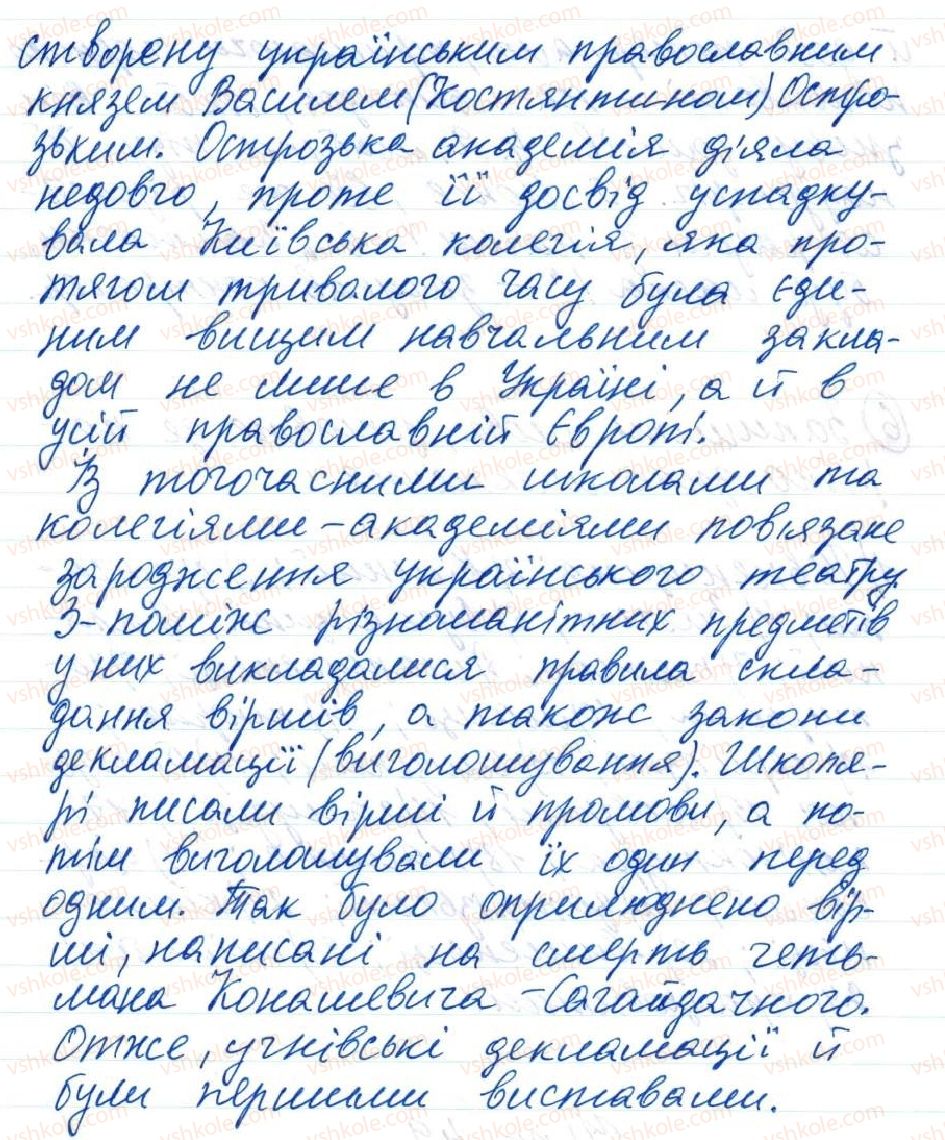 створену українським православним
князем Василем (Костянтином) Остро-
зьким. Острозька академія діяла
недовго, проте її досвід успадку-
вала Київська колегія, яка про-
тягом тривалого часу була єди-
ним вищим навчальним закла-
дом не лише в Україні, а й в
усій православній Європі.
Із тогочасними школами та
колегіями-академіями пов'язане
зародження українського театру.
З-поміж різноманітних предметів
у них викладалися правила скла-
дання віршів, а також закони
декламації (виголошування). Школя-
рі писали вірші й промови, а по-
тім виголошували їх один перед
одним. Так було оприлюднено вір-
ші, написані на смерть геть-
мана Конашевича-Сагайдачного.
Отже, учнівські декламації й
були першими виставами.